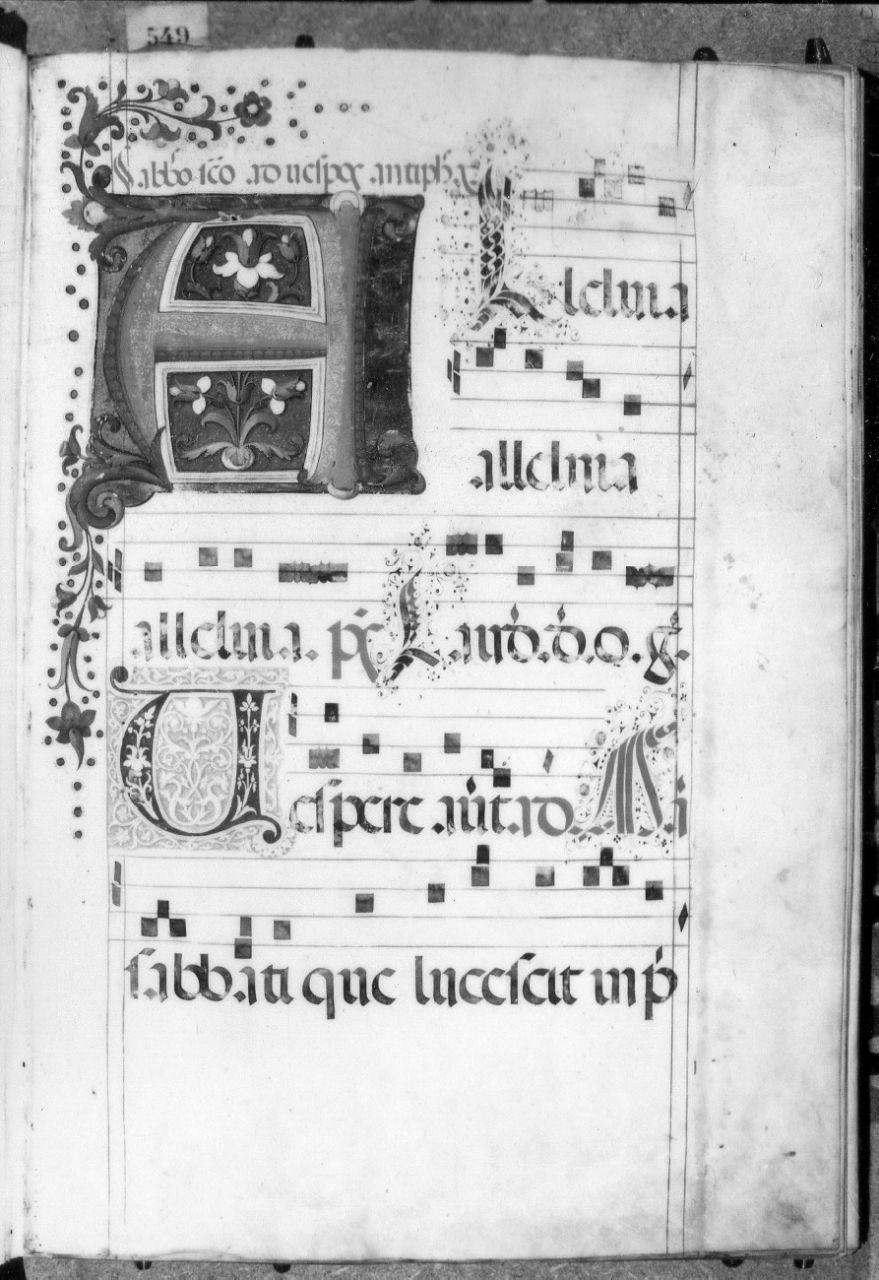 549
Sabbo sco ad uesper antipha
A L leluia
alleluia
alleluia. ps Laud. d. o. g.
Uespere aut ad A i
sabbati que lucescit in p